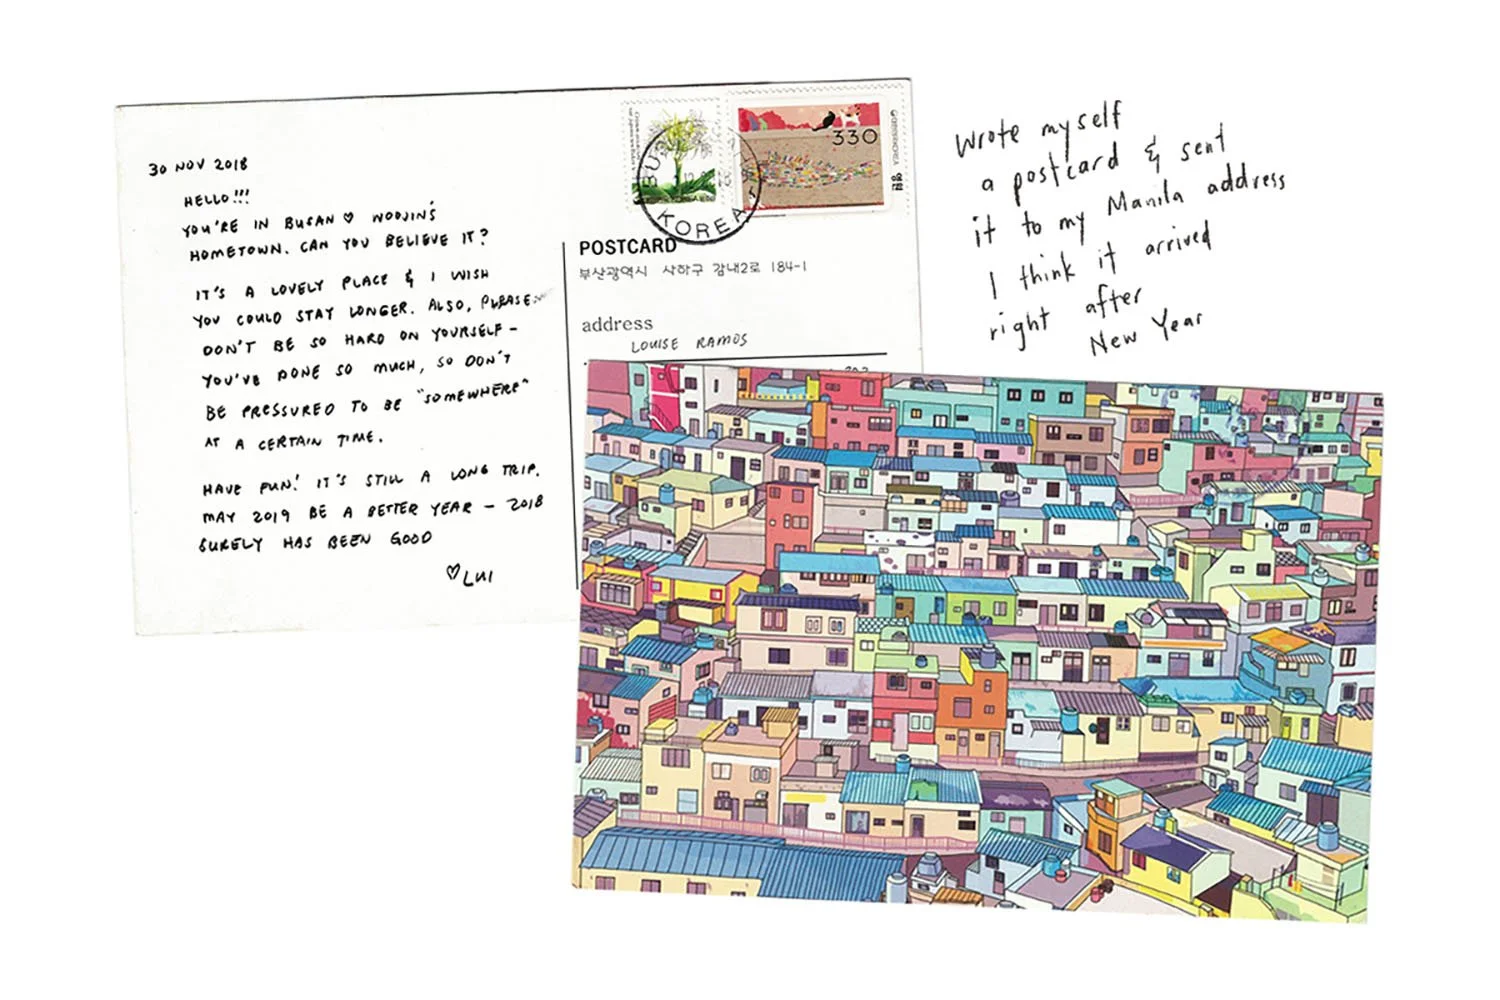 30 NOV 2018
HELLO!!!
YOU'RE IN BUSAN ♡ WOOJIN'S
HOMETOWN. CAN YOU BELIEVE IT?
IT'S A LOVELY PLACE & I WISH
YOU COULD STAY LONGER. ALSO, PLEASE
DON'T BE SO HARD ON YOURSELF –
YOU'VE DONE SO MUCH, SO DON'T
BE PRESSURED TO BE "SOMEWHERE"
AT A CERTAIN TIME.
HAVE FUN! IT'S STILL A LONG TRIP.
MAY 2019 BE A BETTER YEAR – 2018
SURELY HAS BEEN GOOD
♡ LUI
330
KOREA
POSTCARD
부산광역시 사하구 감내2로 184-1
address
LOUISE RAMOS
Wrote myself
a postcard & sent
it to my Manila address
I think it arrived
right after
New Year